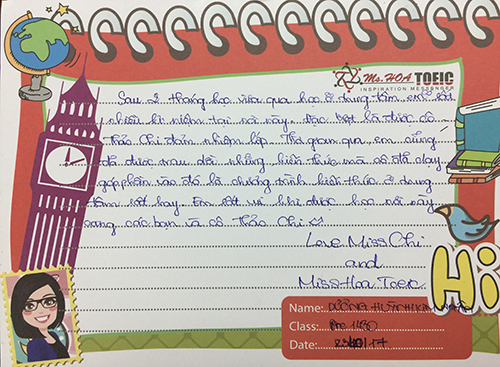 Ms. HOA TOEIC
INSPIRATION MESSENGER
Sau 2 tháng học vừa qua học ở trung tâm, em có rất
nhiều kỉ niệm tại nơi này. Đặc biệt là được cô
Thảo Chi đảm nhiệm lớp. Thời gian qua em cũng
đã được trau dồi những kiến thức mà cô đã dạy
góp phần vào đó là chương trình kiến thức ở trung
tâm rất hay. Em rất vui khi được học nơi này
cùng các bạn và cô Thảo Chi
Love Miss Chi
and
Miss Hoa Toeic.
Hi
Name: DƯƠNG HUỲNH
Class: Pre 1480
Date: